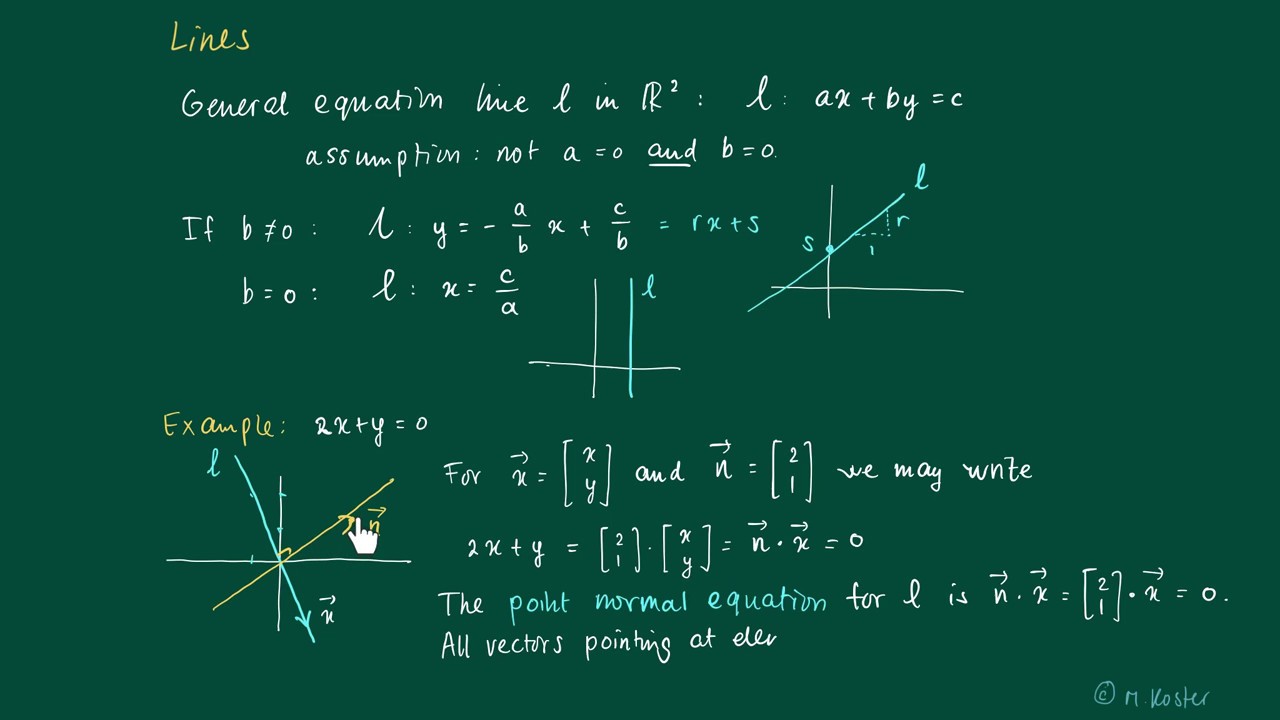 Lines
General equation line l in ℝ² : l : ax + by = c
assumption : not a = 0 and b = 0.
If b ≠ 0 : l : y = - a/b x + c/b = rx + s
b = 0 : l : x = c/a
l
s
r
1
l
Example: 2x + y = 0
l
n⃗
x⃗
For x⃗ = [x y] and n⃗ = [2 1] we may write
2x + y = [2 1] · [x y] = n⃗ · x⃗ = 0
The point normal equation for l is n⃗ · x⃗ = [2 1] · x⃗ = 0.
All vectors pointing at elem
© M. Koster